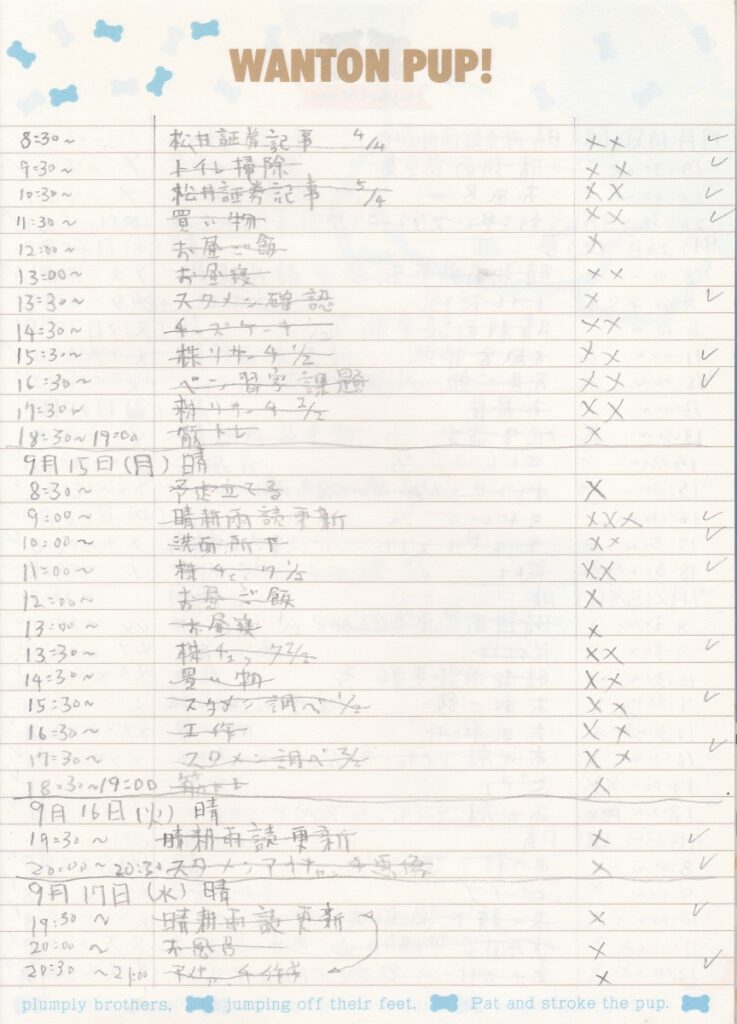 WANTON PUP!
8:30~ 松井証券記事 4/4 ×× ✓
9:30~ トイレ掃除 ×× ✓
10:30~ 松井証券記事 5/4 ×× ✓
11:30~ 買い物 ×× ✓
12:00~ お昼ご飯 ×
13:00~ お昼寝 ××
13:30~ スタメン確認 × ✓
14:30~ チーズケーキ ××
15:30~ 株リサーチ 1/2 ×× ✓
16:30~ ペン習字課題 ×× ✓
17:30~ 株リサーチ 2/2 ××
18:30~19:00 筋トレ ×
9月15日(月) 晴
8:30~ 予定立てる ×
9:00~ 晴耕雨読更新 ××× ✓
10:00~ 洗面所下 ×× ✓
11:00~ 株チェック 1/2 ×× ✓
12:00~ お昼ご飯 ×
13:00~ お昼寝 ×
13:30~ 株チェック 2/2 ×× ✓
14:30~ 買い物 ××
15:30~ スタメン調べ 1/2 ×× ✓
16:30~ 工作 ××
17:30~ スタメン調べ 2/2 ×× ✓
18:30~19:00 筋トレ ×
9月16日(火) 晴
19:30~ 晴耕雨読更新 × ✓
20:00~20:30 スタメン × ✓
9月17日(水) 晴
19:30~ 晴耕雨読更新 × ✓
20:00~ お風呂 ×
20:30~21:00 × ✓
plumply brothers, jumping off their feet. Pat and stroke the pup.